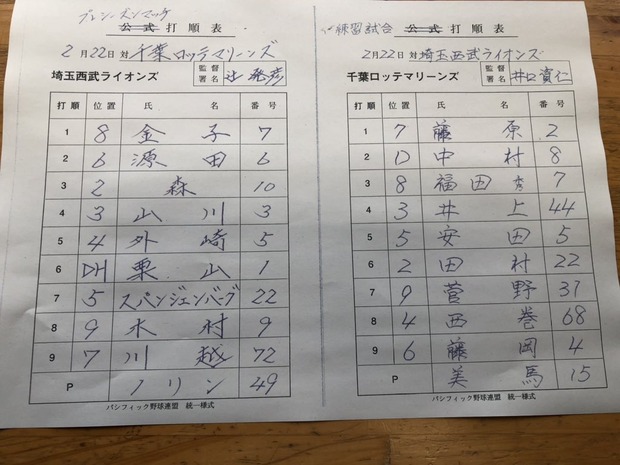 プレシーズンマッチ
公式 打順表
2月22日 対 千葉ロッテマリーンズ
埼玉西武ライオンズ 監督署名 辻発彦
打順 位置 氏名 番号
1 8 金子 7
2 6 源田 6
3 2 森 10
4 3 山川 3
5 4 外崎 5
6 DH 栗山 1
7 5 スパンジェンバーグ 22
8 9 木村 9
9 7 川越 72
P ノリン 49
パシフィック野球連盟 統一様式
練習試合 公式 打順表
2月22日 対 埼玉西武ライオンズ
千葉ロッテマリーンズ 監督署名 井口資仁
打順 位置 氏名 番号
1 7 藤原 2
2 D 中村 8
3 8 福田秀 7
4 3 井上 44
5 5 安田 5
6 2 田村 22
7 9 菅野 31
8 4 西巻 68
9 6 藤岡 4
P 美馬 15
パシフィック野球連盟 統一様式